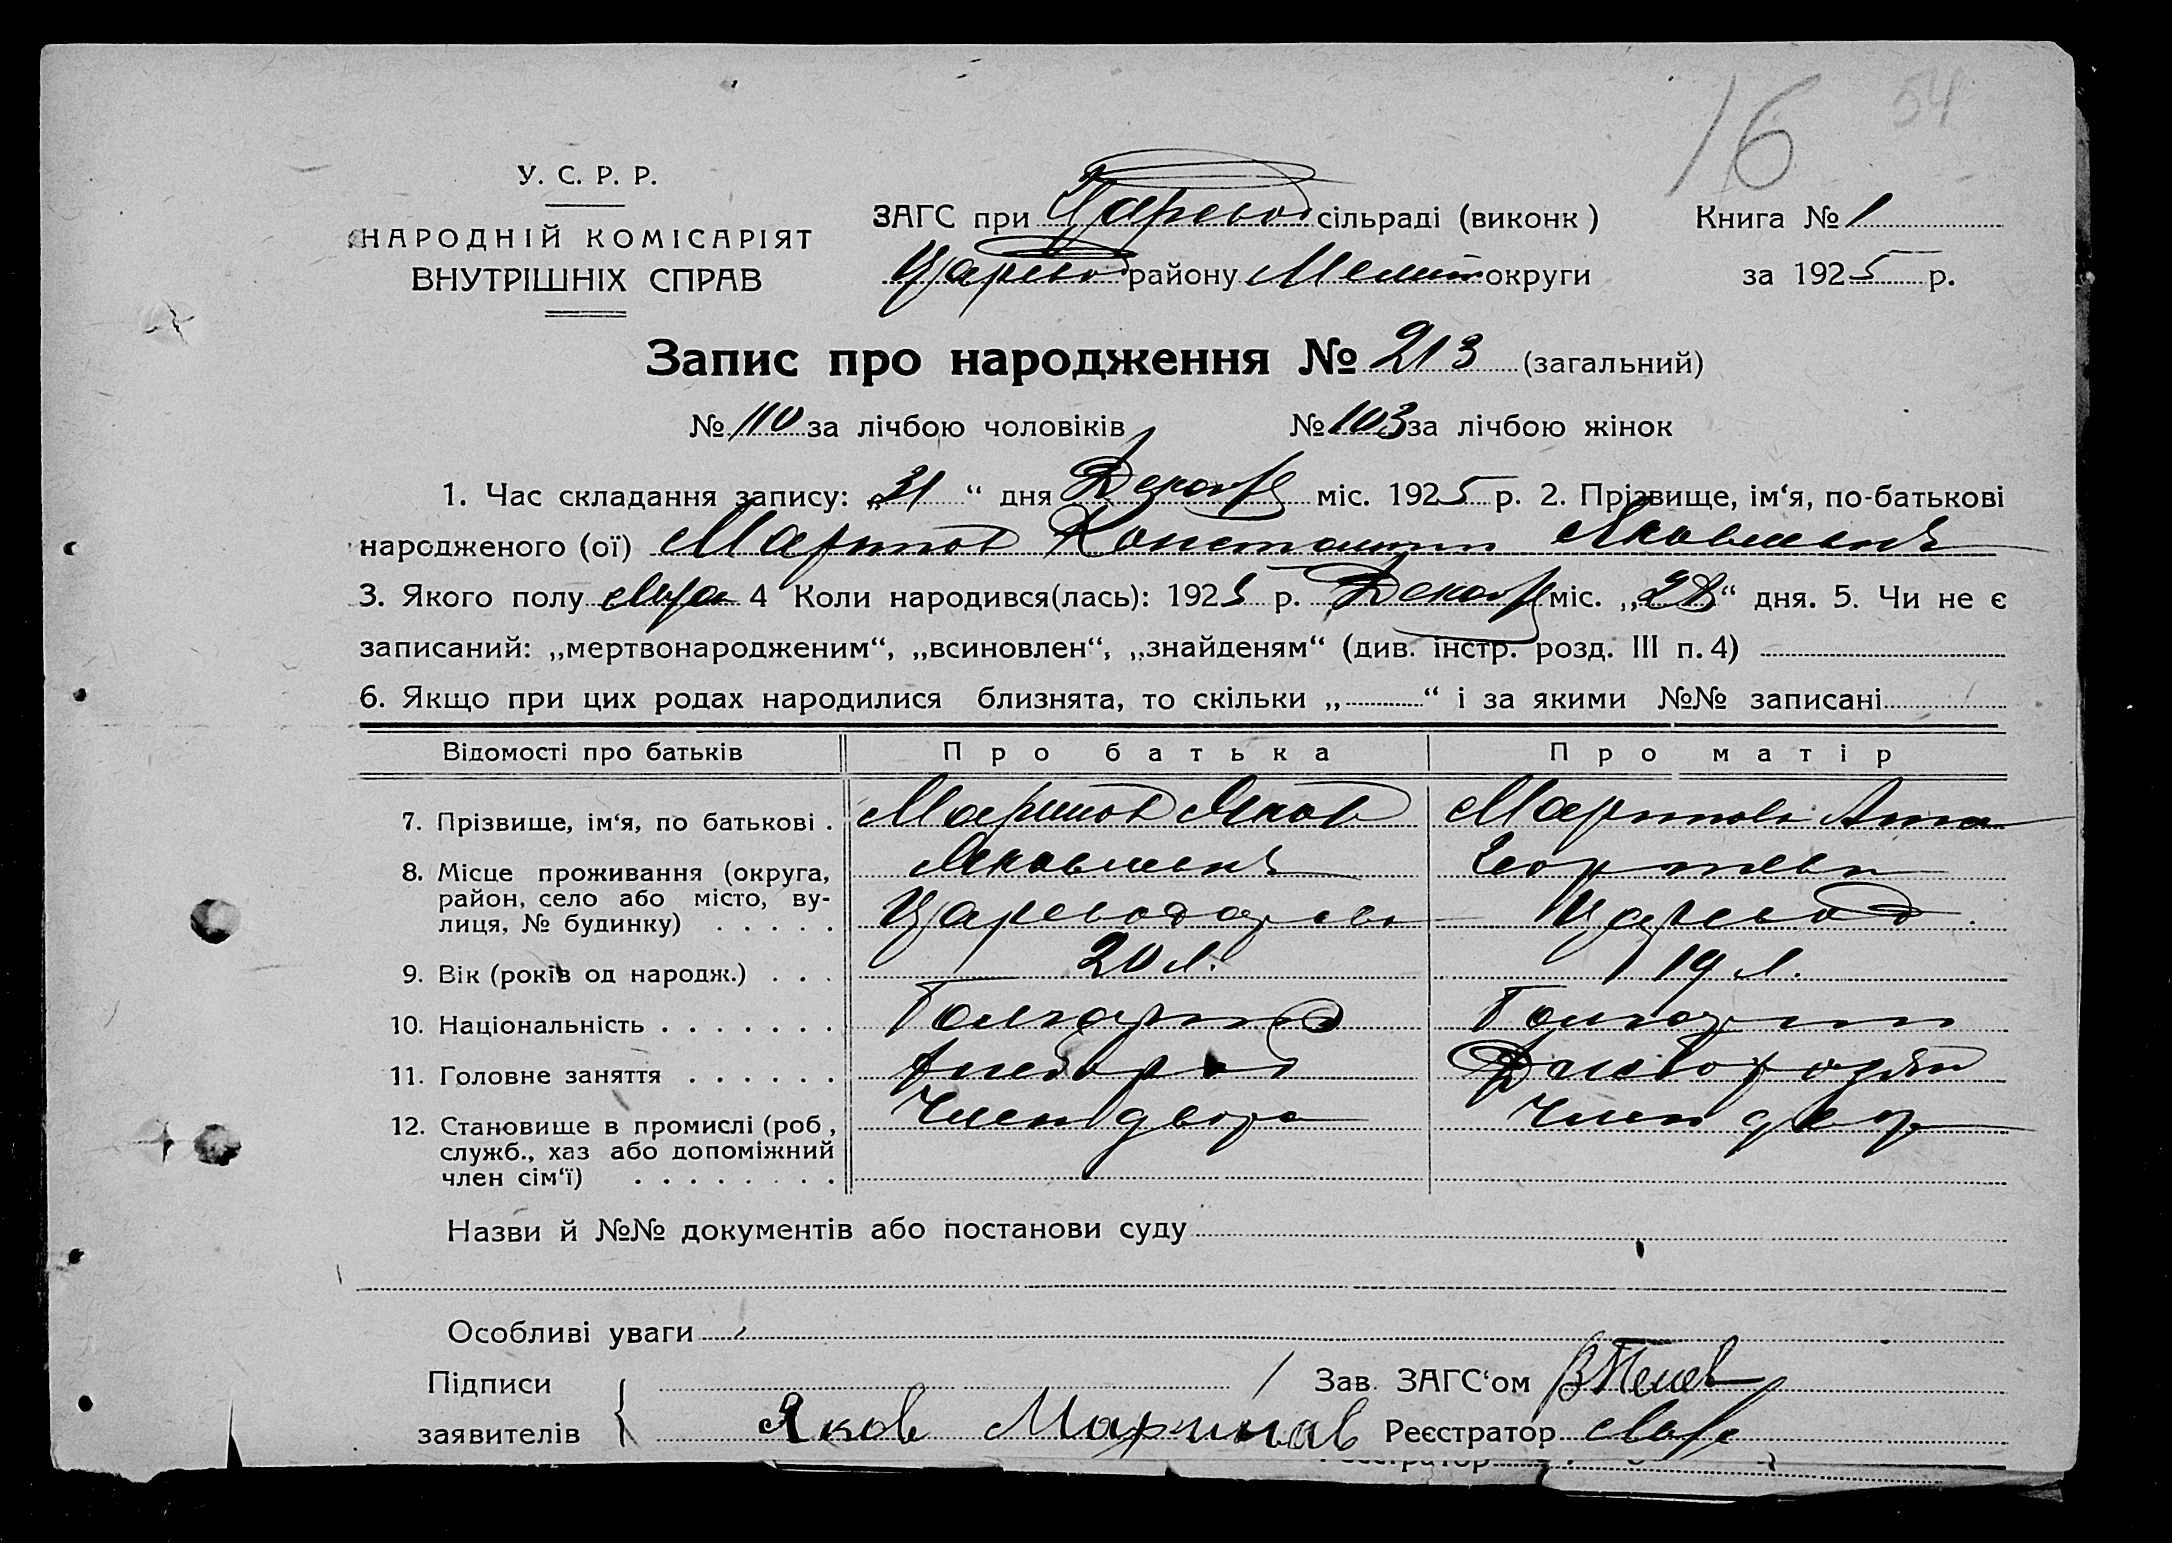 16 54
У. С. Р. Р.
НАРОДНІЙ КОМІСАРІЯТ
ВНУТРІШНІХ СПРАВ
ЗАГС при Царевод сільраді (виконк) Книга № 1
Царевод району Мелит округи за 1925 р.
Запис про народження № 213 (загальний)
№ 110 за лічбою чоловіків № 103 за лічбою жінок
1. Час складання запису: „31“ дня Декабр міс. 1925 р. 2. Прізвище, ім‘я, по-батькові
народженого (ої) Маринов Константин Яковлевич
3. Якого полу 4 Коли народився(лась): 1925 р. Декабр міс. „28“ дня. 5. Чи не є
записаний: „мертвонародженим“, „всиновлен“, „знайденям“ (див. інстр. розд. III п. 4)
6. Якщо при цих родах народилися близнята, то скільки „ “ і за якими №№ записані
Відомості про батьків Про батька Про матір
7. Прізвище, ім‘я, по батькові . Маринов Яков Маринова Анна
Яковлевич Георгиевн
8. Місце проживання (округа,
район, село або місто, ву-
лиця, № будинку) . . . . . Царевод
9. Вік (років од народж.) . . . 20 л. 19 л.
10. Національність . . . . . . . Болгарин Болгарин
11. Головне заняття . . . . . . Хлебороб Домохозяйн
12. Становище в промислі (роб,
служб., хаз або допоміжний
член сім‘ї) . . . . . . . . Член двора Член двор
Назви й №№ документів або постанови суду
Особливі уваги
Підписи
заявителів { Яков Маринов
Зав. ЗАГС‘ом
Реєстратор